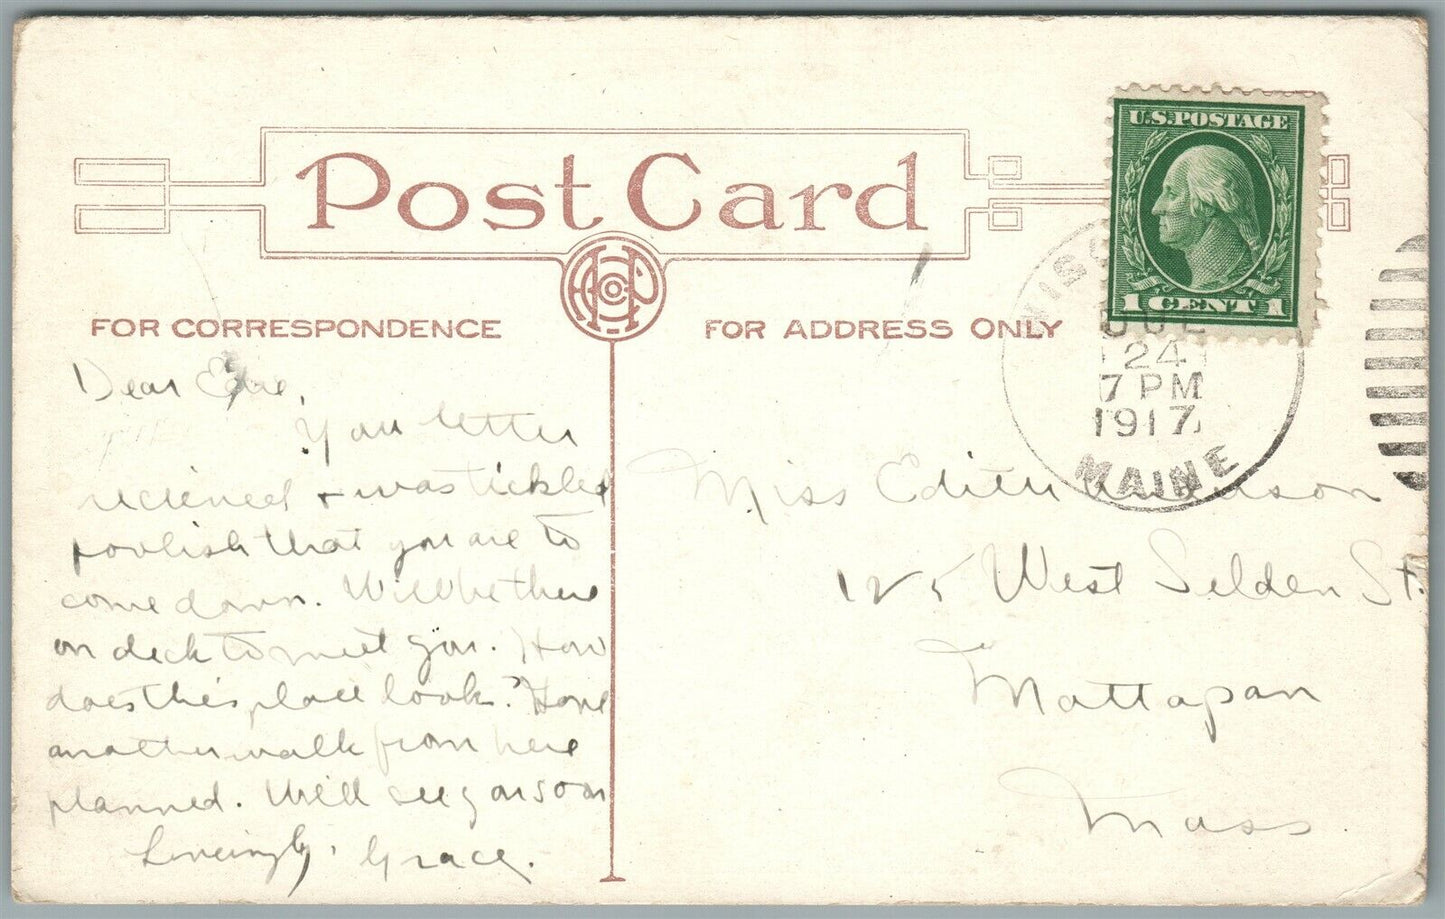 U.S. POSTAGE
1 CENT 1
Post Card
AHPC
FOR CORRESPONDENCE
FOR ADDRESS ONLY
WISC
JUL
24
7 PM
1917
MAINE
Dear
Your letter
recieved + was tickled
foolish that you are to
come down. Will be there
on deck to meet you. How
does this place look? Have
another walk from here
planned. Will see you soon
Lovingly, Grace.
Miss Edith
125 West Selden St.
Mattapan
Mass